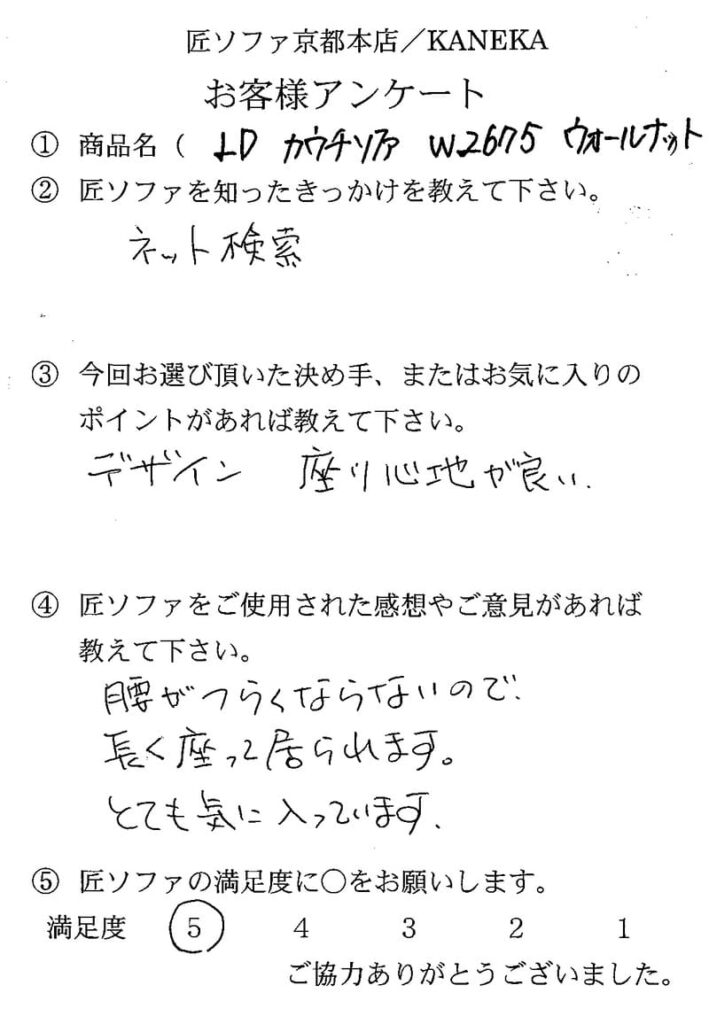 匠ソファ京都本店／KANEKA
お客様アンケート
① 商品名（ LD カウチソファ W2675 ウォールナット
② 匠ソファを知ったきっかけを教えて下さい。
ネット検索
③ 今回お選び頂いた決め手、またはお気に入りの
ポイントがあれば教えて下さい。
デザイン 座り心地が良い.
④ 匠ソファをご使用された感想やご意見があれば
教えて下さい。
腰がつらくならないので、
長く座って居られます。
とても気に入っています.
⑤ 匠ソファの満足度に○をお願いします。
満足度 5 4 3 2 1
ご協力ありがとうございました。